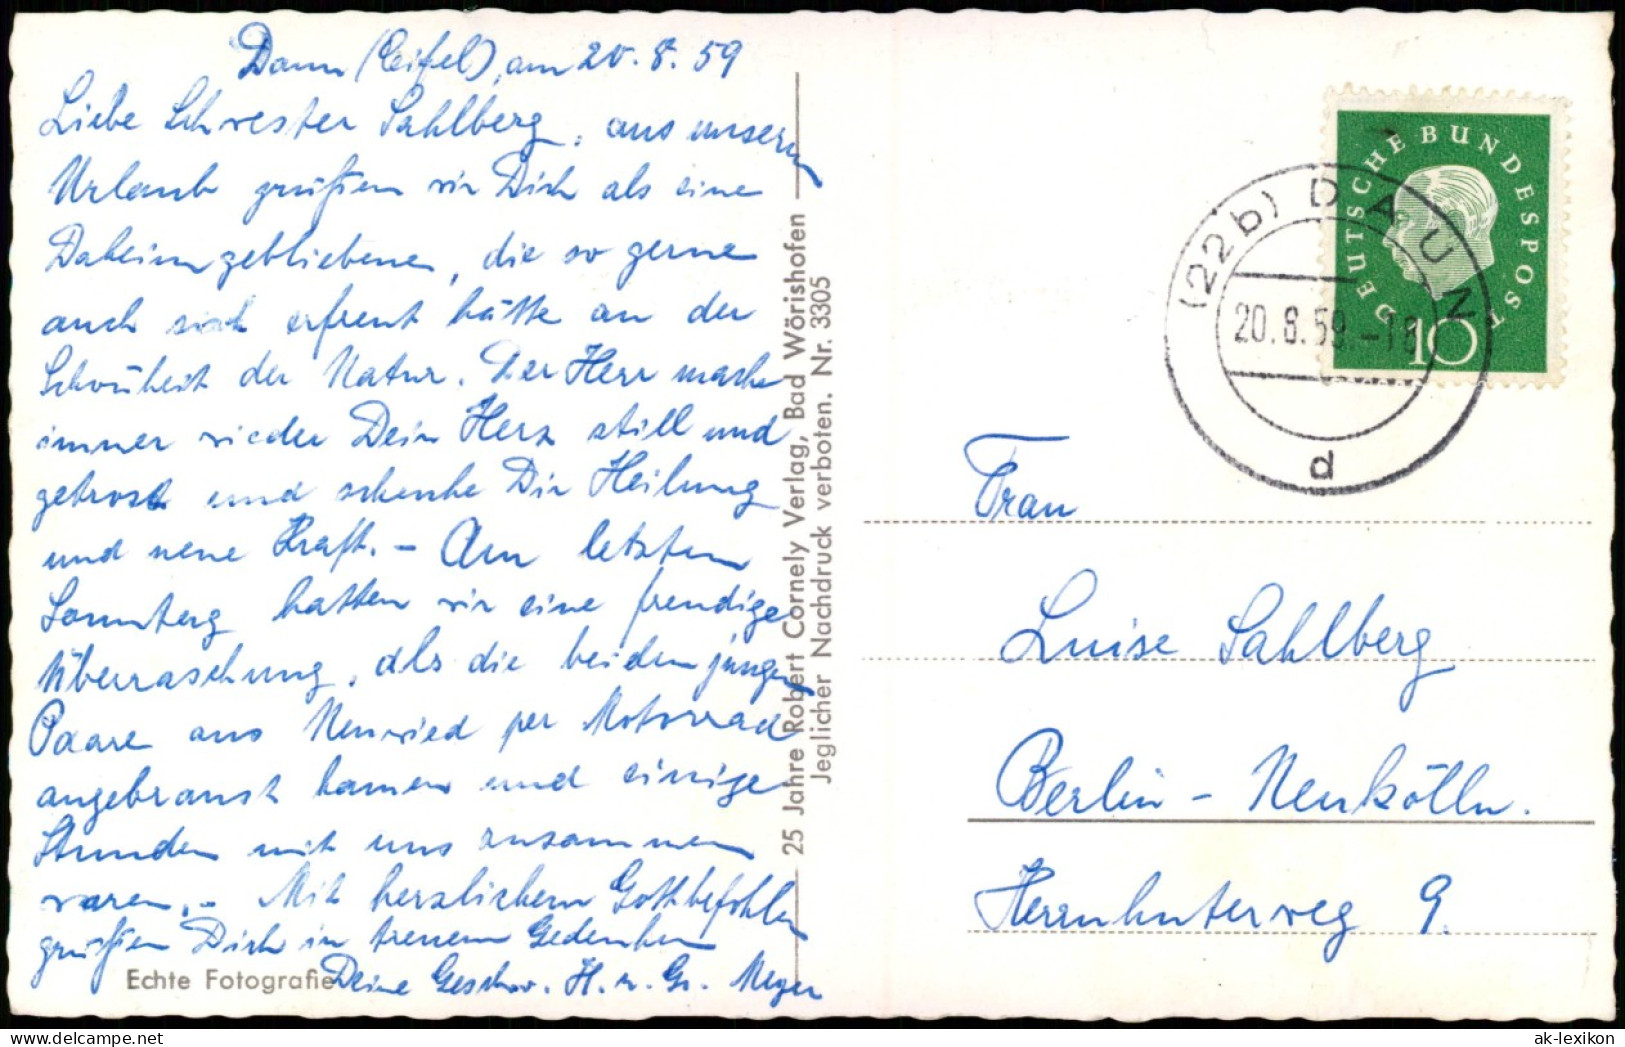 Daun (Eifel), am 20.8.59
Liebe Schwester Sahlberg, aus unserm
Urlaub grüßen wir Dich als eine
Daheimgebliebene, die so gerne
auch sich erfreut hätte an der
Schönheit der Natur. Der Herr mache
immer wieder Dein Herz still und
getrost und schenke Dir Heilung
und neue Kraft. – Am letzten
Sonntag hatten wir eine freudige
Überraschung, als die beiden jungen
Paare aus Neuwied per Motorrad
angebraust kamen und einige
Stunden mit uns zusammen
waren. – Mit herzlichem Gottbefohlen
grüßen Dich in treuem Gedenken
Deine Geschw. H. u. Gr. Meyer
Echte Fotografie
25 Jahre Robert Cornely Verlag, Bad Wörishofen
Jeglicher Nachdruck verboten. Nr. 3305
DEUTSCHE BUNDESPOST
10
(22b) DAUN
20.8.59.-18
d
Frau
Luise Sahlberg
Berlin - Neukölln.
Herrnhuterweg 9.
ak-lexikon